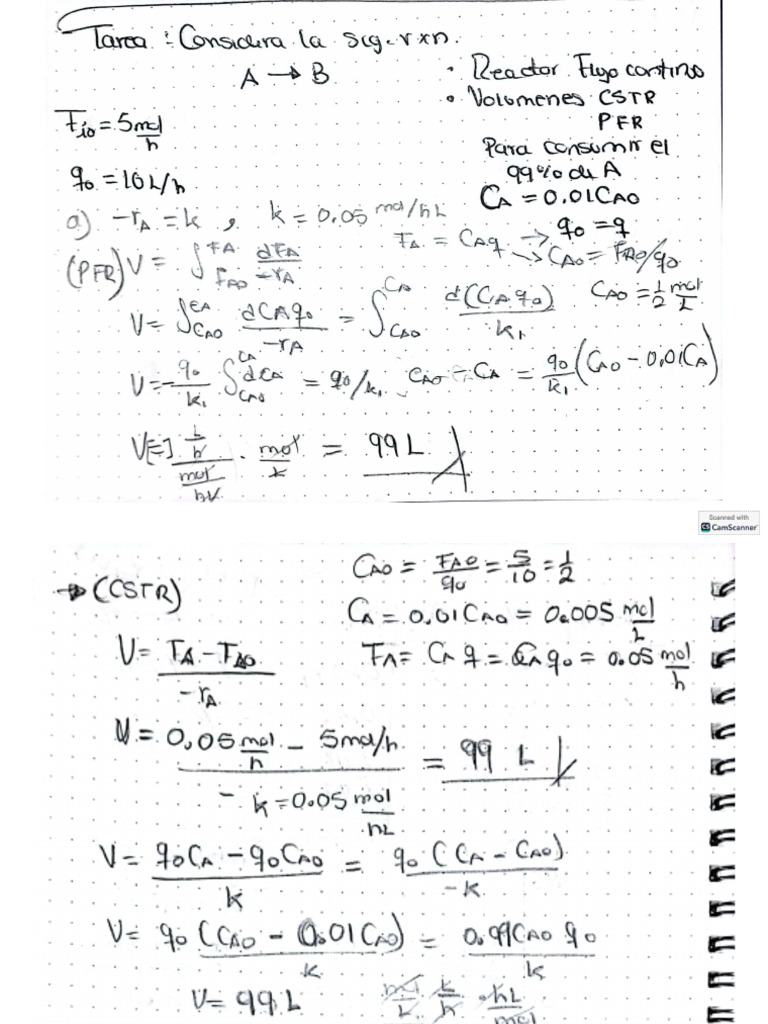 Tarea : Considera la sig. rxn.
A → B
• Reactor Flujo continuo
• Volumenes CSTR
PFR
Para consumir el
99% de A
C_A = 0.01C_A0
F_i0 = 5 mol/h
q_0 = 10 L/h
a) -r_A = k , k = 0.05 mol/hL
F_A = C_A q → q_0 = q
→ C_A0 = F_A0/q_0
(PFR) V = ∫_{F_A0}^{F_A} dF_A/-r_A
C_A0 = 1/2 mol/L
V = ∫_{C_A0}^{C_A} dC_A q_0/-r_A = ∫_{C_A0}^{C_A} d(C_A q_0)/k_1
V = -q_0/k_1 ∫_{C_A0}^{C_A} dC_A = q_0/k_1 C_A0 - C_A = q_0/k_1 (C_A0 - 0.01C_A)
V[=] (L/h)/(mol/hL) · mol/L = 99 L
Scanned with
CS CamScanner
→ (CSTR)
C_A0 = F_A0/q_0 = 5/10 = 1/2
C_A = 0.01C_A0 = 0.005 mol/L
V = (F_A - F_A0)/-r_A
F_A = C_A q = C_A q_0 = 0.05 mol/h
V = (0.05 mol/h - 5 mol/h)/(- k = 0.05 mol/hL) = 99 L
V = (q_0 C_A - q_0 C_A0)/k = q_0 (C_A - C_A0)/-k
V = q_0 (C_A0 - 0.01C_A0)/k = 0.99C_A0 q_0/k
V = 99 L mol/L L/h · hL/mol